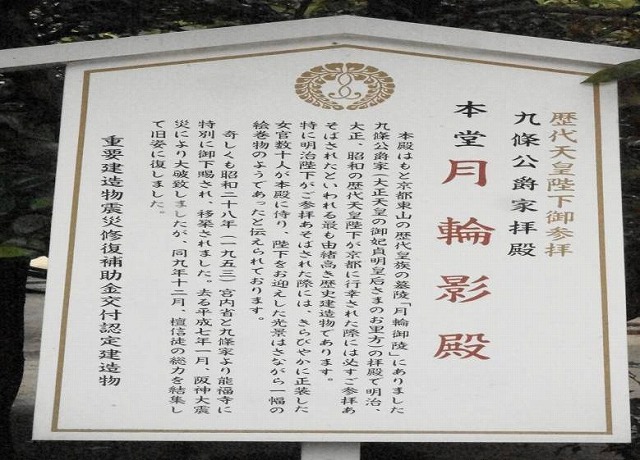 歴代天皇陛下御参拝
九條公爵家拝殿
本堂月輪影殿
本殿はもと京都東山の歴代皇族の墓陵「月輪御陵」にありました
九條公爵家(大正天皇の御妃貞明皇后さまのお里方)の拝殿で明治、
大正、昭和の歴代天皇陛下が京都に行幸された際には必ずご参拝あ
そばされたといわれる最も由緒高き歴史建造物であります。
特に明治陛下がご参拝あそばされた際には、きらびやかに正装した
女官数十人が本殿に侍り、陛下をお迎えした光景はさながら一幅の
絵巻物のようであったと伝えられております。
奇しくも昭和二十八年(一九五三)宮内省と九條家より能福寺に
特別に御下賜され、移築されました。去る平成七年一月、阪神大震
災により大破致しましたが、同九年十二月、檀信徒の総力を結集し
て旧姿に復しました。
重要建造物震災修復補助金交付認定建造物